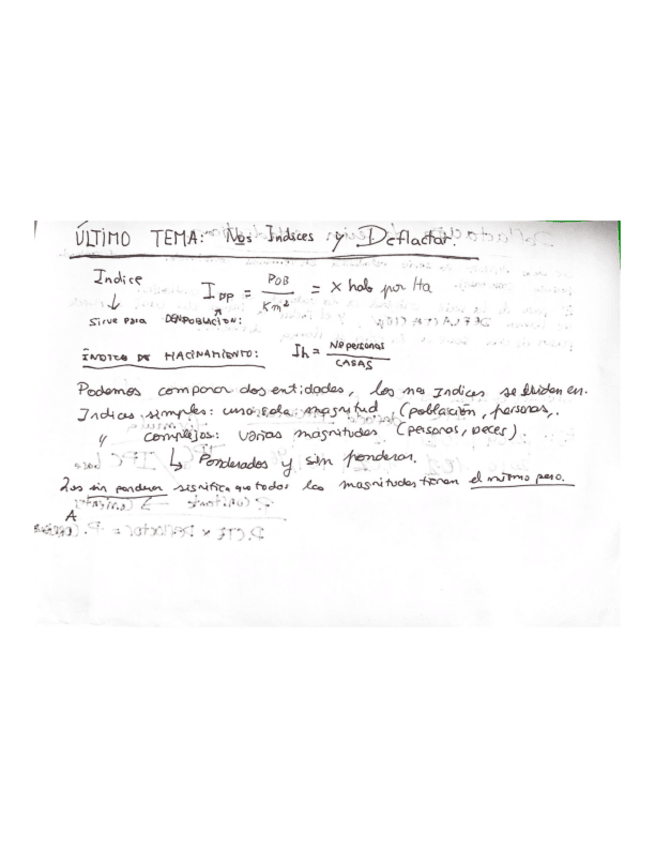 ÚLTIMO TEMA: Nos Índices y Deflactar.
Indice
I DP = POB / Km² = x hab por Ha
Sirve para DENPOBLACION:
ÍNDICE DE HACINAMIENTO: Ih = Nº personas / CASAS
Podemos comparar dos entidades, los nos Indices se dividen en.
Indices simples: una sola magnitud (población, personas,.
" complejos: varias magnitudes (personas, peces)
↳ Ponderados y sin ponderar.
Los sin ponderar significa que todas las magnitudes tienen el mismo peso.
A